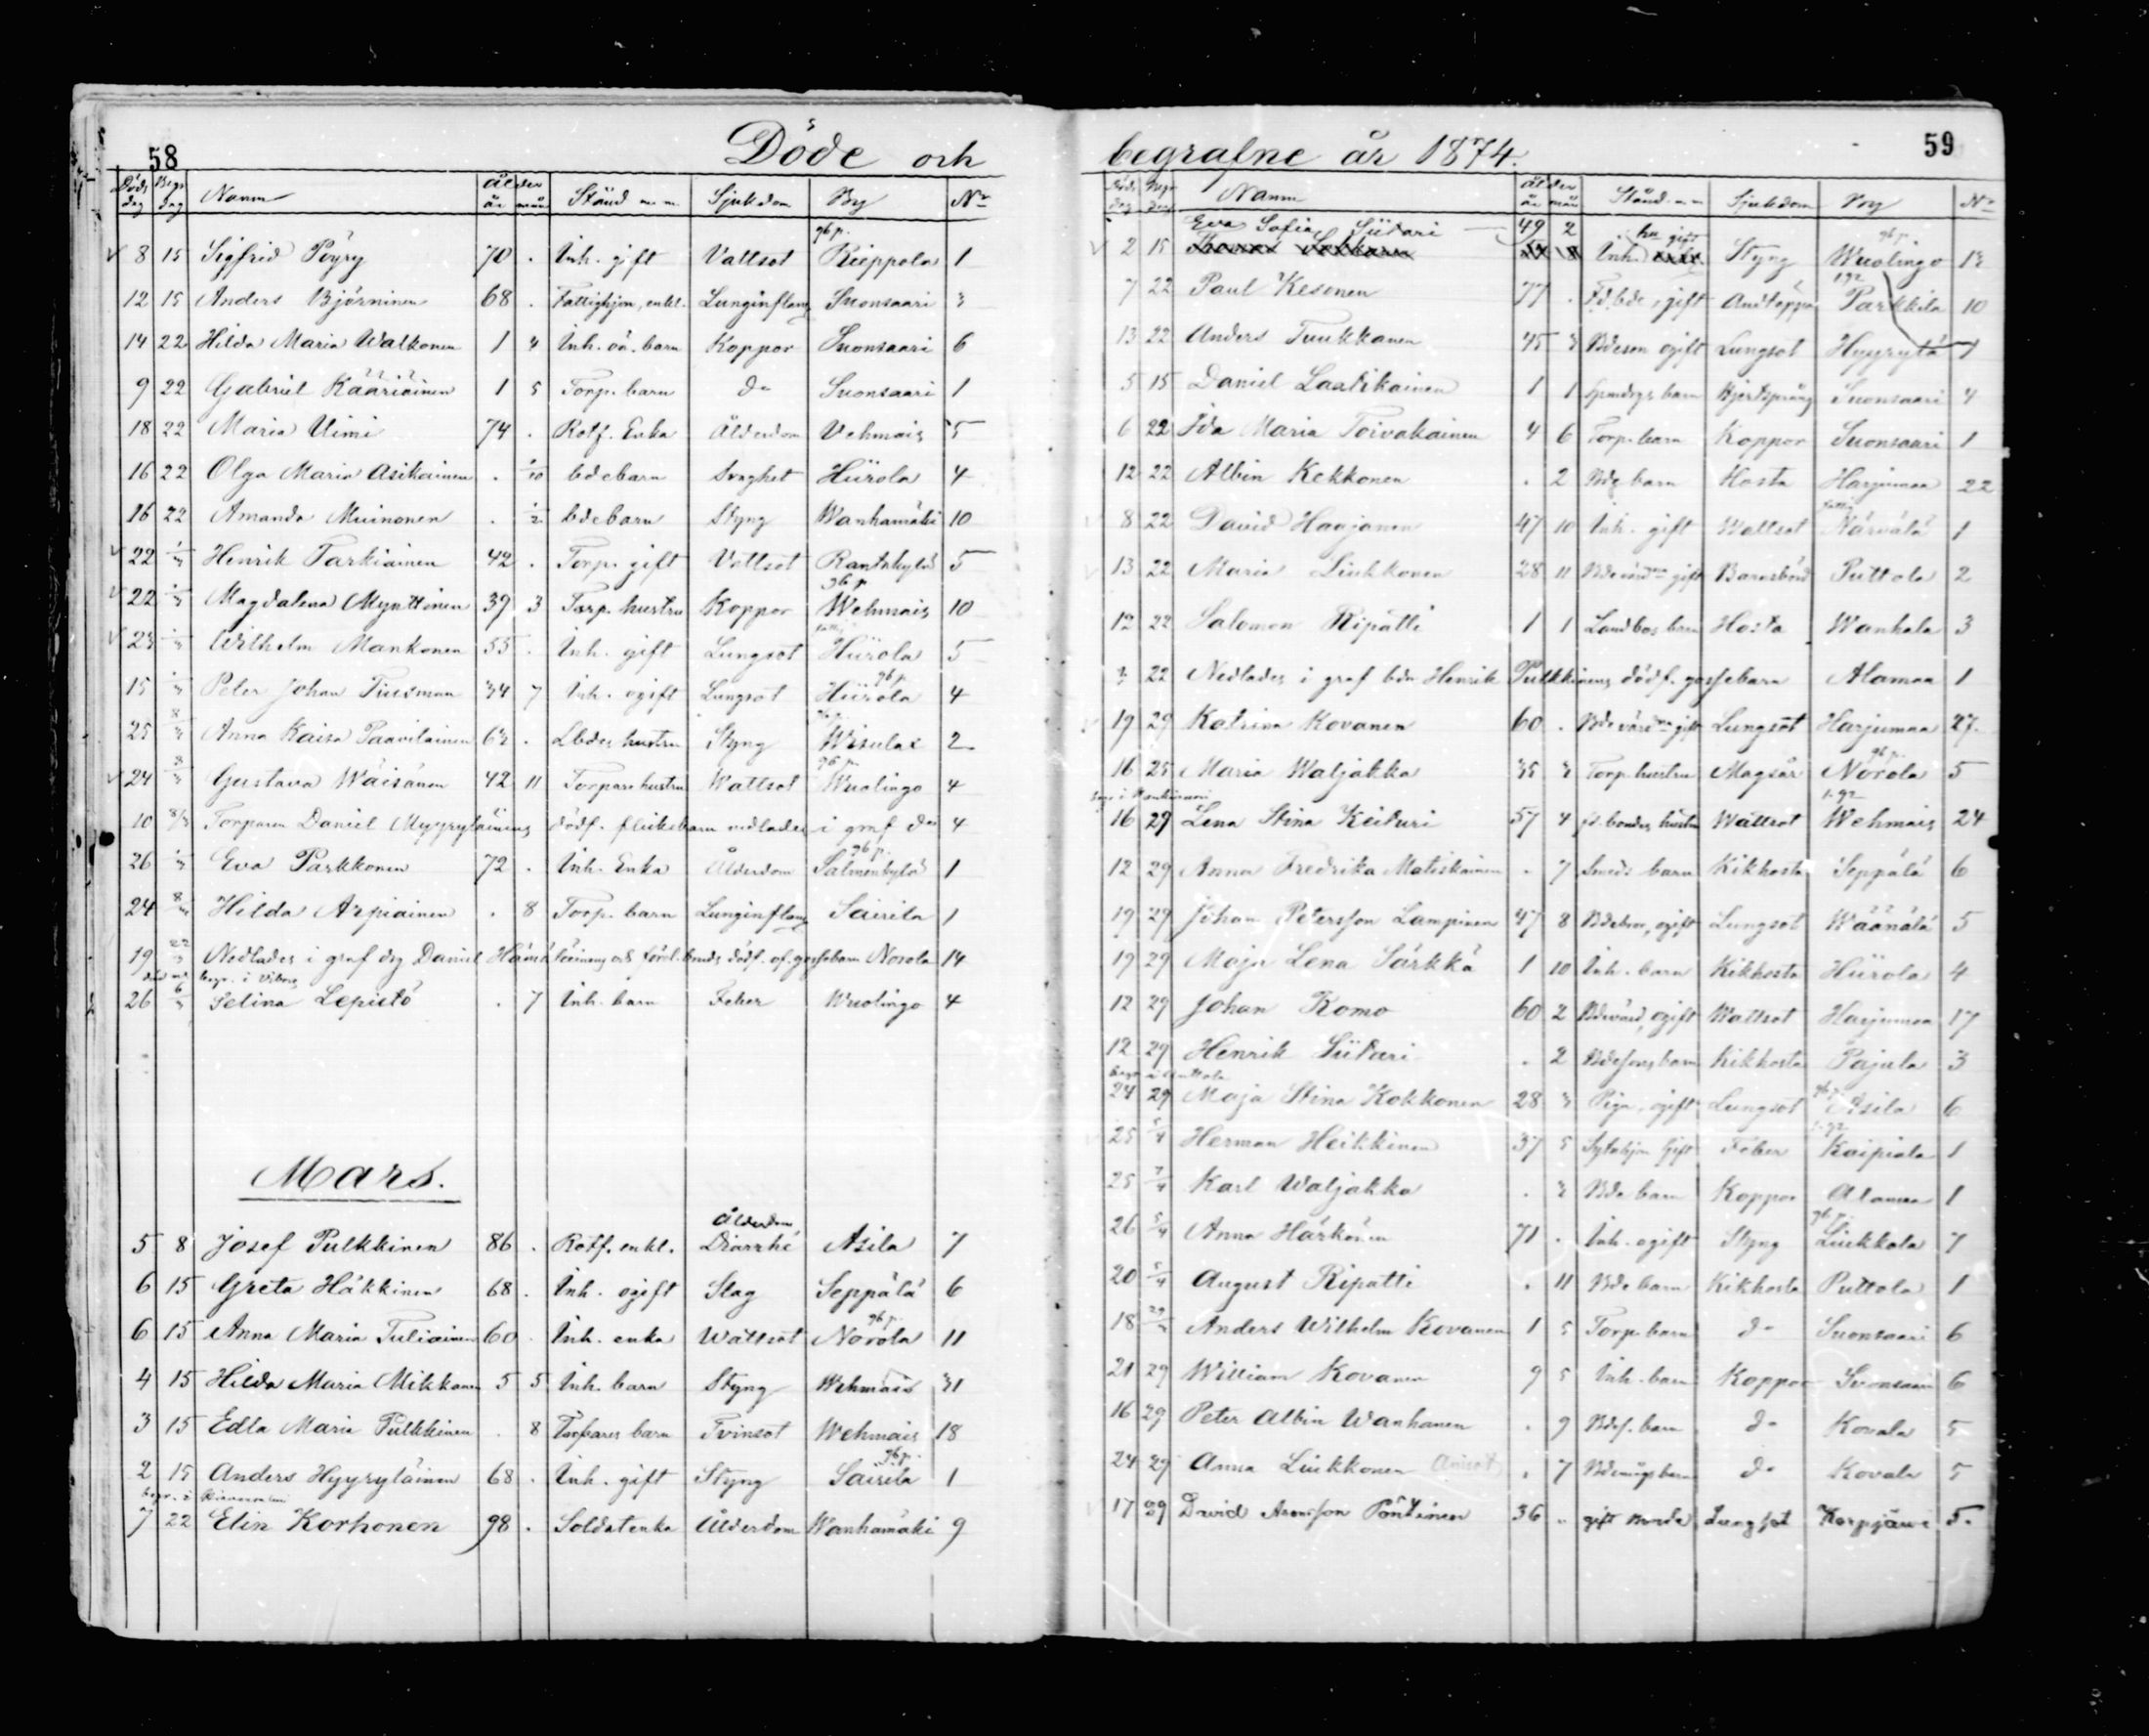 58
Döde och
Döds dag Begr dag Namn Ålder år mån Stånd m. m. Sjukdom By No
8 15 Sigfrid Pöyry 70 . Inh. gift Vattsot Rieppola gb p. 1
12 15 Anders Björninen 68 . Fattighjon, enkl. Lunginflam Suonsaari 3
14 22 Hilda Maria Walkonen 1 4 Inh. oä. barn Koppor Suonsaari 6
9 22 Gabriel Kääriäinen 1 5 Torp. barn do Suonsaari 1
18 22 Maria Uimi 74 . Rotf. Enka Ålderdom Vehmais 5
16 22 Olga Maria Asikainen . 1/10 bdebarn Svaghet Hiirola 4
16 22 Amanda Muinonen . 1/2 bdebarn Styng Wanhamäki 10
22 1/3 Henrik Tarkiainen 42 . Torp. gift Vattsot Rantakylä 5
22 1/3 Magdalena Mynttinen 39 3 Torp. hustru Koppor gb p Wehmais 10
23 1/3 Wilhelm Mankonen 55 . Inh. gift Lungsot Hiirola 5
15 1/3 Peter Johan Tiusman 34 7 Inh. ogift Lungsot gb p. Hiirola 4
25 8/3 Anna Kaisa Paavilainen 63 . Lbdes hustru Styng Wisulax 2
24 8/3 Gustava Wäisänen 42 11 Torpare hustru Wattsot gb p. Wuolingo 4
10 8/3 Torparen Daniel Myyryläinens dödf. flickebarn nedlades i graf das 4
26 1/3 Eva Parkkonen 72 . Inh. Enka Ålderdom gb p. Salmenkylä 1
24 8/3 Hilda Arpiainen . 8 Torp. barn Lunginflam Sairila 1
19 22/3 Nedlades i graf dig Daniel Hämäläinens dödf. gossebarn Norola 14
begr. i Viborg
26 6/3 Selina Lepistö . 7 Inh. barn Feber Wuolingo 4
Mars.
5 8 Josef Pulkkinen 86 . Rotf. enkl. Ålderdom, Diarrhé Asila 7
6 15 Greta Häkkinen 68 . Inh. ogift Slag Seppälä 6
6 15 Anna Maria Tuliainen 60 . Inh. enka Wattsot gb p. Norola 11
4 15 Hilda Maria Mikkonen 5 5 Inh. barn Styng Wehmais 31
3 15 Edla Maria Pulkkinen . 8 Torpares barn Tvinsot Wehmais 18
2 15 Anders Hyyryläinen 68 . Inh. gift Styng gb p. Sairila 1
begr. i
7 22 Elin Korhonen 98 . Soldatenka Ålderdom Wanhamäki 9
59
begrafne år 1874.
Döds dag Begr dag Namn Ålder år mån Stånd m m Sjukdom By No
2 15 Eva Sofia Siitari 49 2 Inh. hu gift Styng gb p. Wuolingo 13
7 22 Paul Kesonen 77 . Fd. bde, gift Andtäppa Parkkila 10
13 22 Anders Tuukkanen 45 3 Bdeson ogift Lungsot Hyyrylä 1
5 15 Daniel Lastikainen 1 1 barn Hjertsprång Suonsaari 4
6 22 Ida Maria Toivakainen 4 6 Torp. barn Koppor Suonsaari 1
12 22 Albin Kekkonen . 2 Bde barn Hosta Harjumaa 22
8 22 David Haajanen 47 10 Inh. gift Wattsot Närvälä 1
13 22 Maria Liukkonen 28 11 Bdevärdna gift Barnsbörd Puttola 2
12 22 Salomon Ripatti 1 1 Landbos barn Hosta Wanhala 3
3 22 Nedlades i graf bdn Henrik Pulkkinens dödf. gossebarn Alamaa 1
19 29 Katrina Kovanen 60 . Bdevärdna gift Lungsot Harjumaa 27.
16 25 Maria Waljakka 35 3 Torp. hustru Magsår gb p. Norola 5
16 29 Lena Stina Keituri 57 4 fd. bondes hustru Wattsot Wehmais 24
12 29 Anna Fredrika Matiskainen . 7 Smeds barn Kikhosta Seppälä 6
19 29 Johan Petersson Lampinen 47 8 Bdebror, ogift Lungsot Wäänälä 5
19 29 Maja Lena Särkkä 1 10 Inh. barn Kikhosta Hiirola 4
12 29 Johan Romo 60 2 Bdevärd, ogift Wattsot Harjumaa 17
12 29 Henrik Siitari . 2 Bdesons barn Kikhosta Pajala 3
begr. i Anttola
24 29 Maja Stina Kokkonen 28 3 Piga, ogift Lungsot Asila 6
25 5/4 Herman Heikkinen 37 5 Sytnhjon gift Feber Kaipiala 1
25 7/4 Karl Waljakka . 3 Bde barn Koppor Alamaa 1
26 5/4 Anna Härkönen 71 . Inh. ogift Styng gb p. Liukkola 7
20 5/4 August Ripatti . 11 Bde barn Kikhosta Puttola 1
18 29/3 Anders Wilhelm Kovanen 1 5 Torp. barn do Suonsaari 6
21 29 William Kovanen 9 5 Inh. barn Koppor Suonsaari 6
16 29 Peter Albin Wanhanen . 9 Bdes. barn do Kovala 5
24 29 Anna Liukkonen . 7 Bdemågs barn do Kovala 5
17 29 David Aronsson Pöntinen 36 . gift Bonde Lungsot Korpijärvi 5.